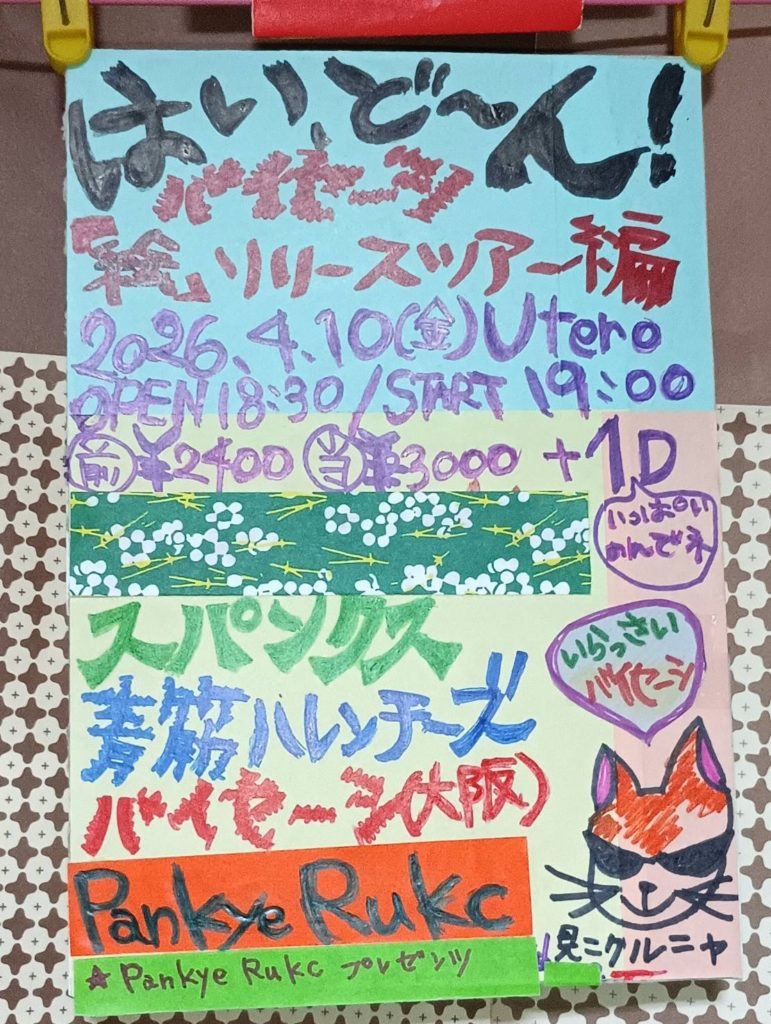 はい、ど〜ん!
バイセーシ
「絶」リリースツアー編
2026.4.10(金)Utero
OPEN 18:30 / START 19:00
前 ¥2400 当 ¥3000 +1D
いっぱい
のんでネ
スパンクス
いらっさい
バイセーシ
青筋ハレンチーズ
バイセーシ(大阪)
Pankye Rukc
見ニクルニャ
☆ Pankye Rukc プレゼンツ